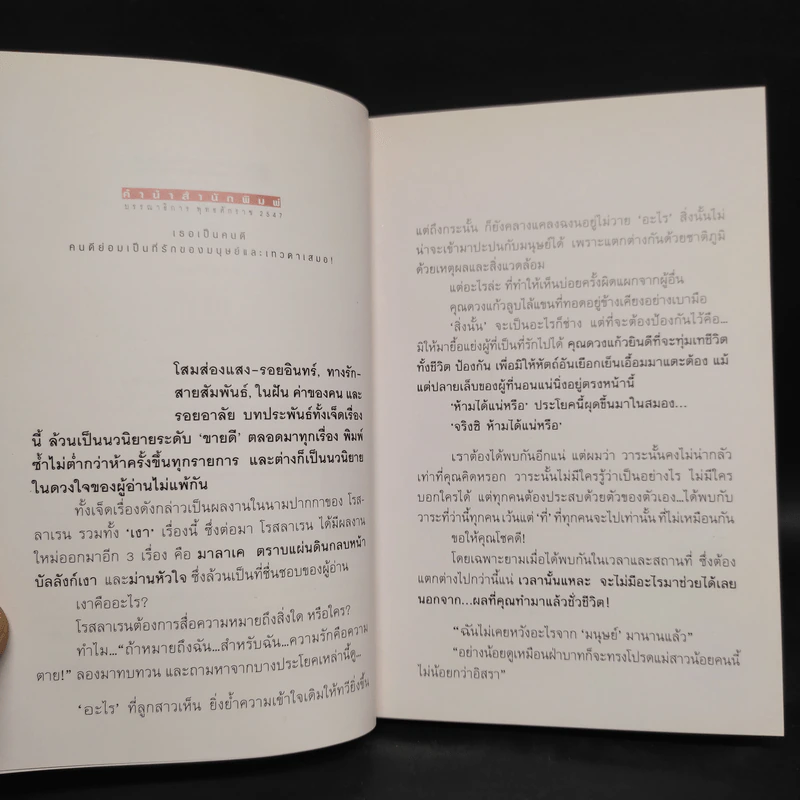 คำนำสำนักพิมพ์
บรรณาธิการ พุทธศักราช 2547
เธอเป็นคนดี
คนดีย่อมเป็นที่รักของมนุษย์และเทวดาเสมอ!
โสมส่องแสง-รอยอินทร์, ทางรัก-
สายสัมพันธ์, ในฝัน ค่าของคน และ
รอยอาลัย บทประพันธ์ทั้งเจ็ดเรื่อง
นี้ ล้วนเป็นนวนิยายระดับ 'ขายดี' ตลอดมาทุกเรื่อง พิมพ์
ซ้ำไม่ต่ำกว่าห้าครั้งขึ้นทุกรายการ และต่างก็เป็นนวนิยาย
ในดวงใจของผู้อ่านไม่แพ้กัน
ทั้งเจ็ดเรื่องดังกล่าวเป็นผลงานในนามปากกาของ โรส-
ลาเรน รวมทั้ง 'เงา' เรื่องนี้ ซึ่งต่อมา โรสลาเรน ได้มีผลงาน
ใหม่ออกมาอีก 3 เรื่อง คือ มาลาเค ตราบแผ่นดินกลบหน้า
บัลลังก์เงา และม่านหัวใจ ซึ่งล้วนเป็นที่ชื่นชอบของผู้อ่าน
เงาคืออะไร?
โรสลาเรนต้องการสื่อความหมายถึงสิ่งใด หรือใคร?
ทำไม..."ถ้าหมายถึงฉัน...สำหรับฉัน...ความรักคือความ
ตาย!" ลองมาทบทวน และถามหาจากบางประโยคเหล่านี้ดู...
'อะไร' ที่ลูกสาวเห็น ยิ่งย้ำความเข้าใจเดิมให้ทวียิ่งขึ้น
แต่ถึงกระนั้น ก็ยังคลางแคลงฉงนอยู่ไม่วาย 'อะไร' สิ่งนั้นไม่
น่าจะเข้ามาปะปนกับมนุษย์ได้ เพราะแตกต่างกันด้วยชาติภูมิ
ด้วยเหตุผลและสิ่งแวดล้อม
แต่อะไรล่ะ ที่ทำให้เห็นบ่อยครั้งผิดแผกจากผู้อื่น
คุณดวงแก้วลูบไล้แขนที่ทอดอยู่ข้างเคียงอย่างเบามือ
'สิ่งนั้น' จะเป็นอะไรก็ช่าง แต่ที่จะต้องป้องกันไว้คือ...
มิให้มายื้อแย่งผู้ที่เป็นที่รักไปได้ คุณดวงแก้วยินดีที่จะทุ่มเทชีวิต
ทั้งชีวิต ป้องกัน เพื่อมิให้หัตถ์อันเยือกเย็นเอื้อมมาแตะต้อง แม้
แต่ปลายเล็บของผู้ที่นอนแน่นิ่งอยู่ตรงหน้านี้
'ห้ามได้แน่หรือ' ประโยคนี้ผุดขึ้นมาในสมอง...
'จริงซิ ห้ามได้แน่หรือ'
เราต้องได้พบกันอีกแน่ แต่ผมว่า วาระนั้นคงไม่น่ากลัว
เท่าที่คุณคิดหรอก วาระนั้นไม่มีใครรู้ว่าเป็นอย่างไร ไม่มีใคร
บอกใครได้ แต่ทุกคนต้องประสบด้วยตัวของตัวเอง...ได้พบกับ
วาระที่ว่านี้ทุกคน เว้นแต่ 'ที่' ที่ทุกคนจะไปเท่านั้น ที่ไม่เหมือนกัน
ขอให้คุณโชคดี!
โดยเฉพาะยามเมื่อได้พบกันในเวลาและสถานที่ ซึ่งต้อง
แตกต่างไปกว่านี้แน่ เวลานั้นแหละ จะไม่มีอะไรมาช่วยได้เลย
นอกจาก...ผลที่คุณทำมาแล้วชั่วชีวิต!
"ฉันไม่เคยหวังอะไรจาก 'มนุษย์' มานานแล้ว"
"อย่างน้อยดูเหมือนฝ่าบาทก็จะทรงโปรดแม่สาวน้อยคนนี้
ไม่น้อยกว่าอิสรา"